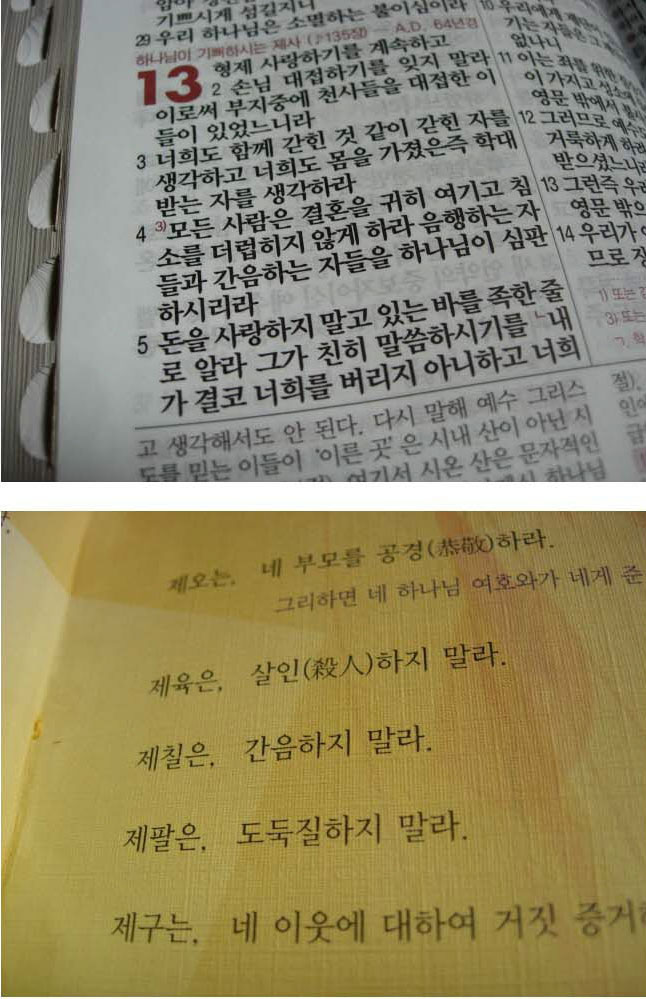 기쁘시게 섬길지니
29 우리 하나님은 소멸하는 불이심이라
하나님이 기뻐하시는 제사 (♪135장) — A.D. 64년경
13 형제 사랑하기를 계속하고
2 손님 대접하기를 잊지 말라
이로써 부지중에 천사들을 대접한 이
들이 있었느니라
3 너희도 함께 갇힌 것 같이 갇힌 자를
생각하고 너희도 몸을 가졌은즉 학대
받는 자를 생각하라
4 3)모든 사람은 결혼을 귀히 여기고 침
소를 더럽히지 않게 하라 음행하는 자
들과 간음하는 자들을 하나님이 심판
하시리라
5 돈을 사랑하지 말고 있는 바를 족한 줄
로 알라 그가 친히 말씀하시기를 ㄱ내
가 결코 너희를 버리지 아니하고 너희
고 생각해서도 안 된다. 다시 말해 예수 그리스
도를 믿는 이들이 '이른 곳'은 시내 산이 아닌 시
여기서 시온 산은 문자적인
하나님
10 우리에게
없나니
11 이는 죄를 위한
이 가지고 성소에
영문 밖에서
12 그러므로 예수
거룩하게 하려
받으셨느니라
13 그런즉 우리
영문 밖으
14 우리가
므로
1) 또는
3) 또는
절).
제오는, 네 부모를 공경(恭敬)하라.
그리하면 네 하나님 여호와가 네게 준
제육은, 살인(殺人)하지 말라.
제칠은, 간음하지 말라.
제팔은, 도둑질하지 말라.
제구는, 네 이웃에 대하여 거짓 증거